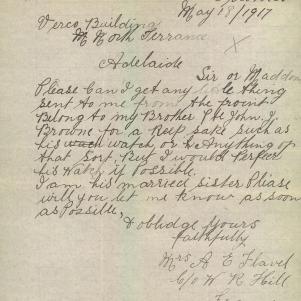 May 18/1917
Verco Building
North Terrance
Adelaide
Sir or Maddom
Please Can I get any little thing
sent to me from the front
Belong to my Brother Pte John. J.
Browne for a keep sake such as
his watch, or Anything of
that Sort, But I would Perfer
his Watch if Possible.
I am his married sister Please
will you let me know as soon
as Possible,
& obblidge Yours
faithfully
Mrs A E Flavel
C/o W R Hill